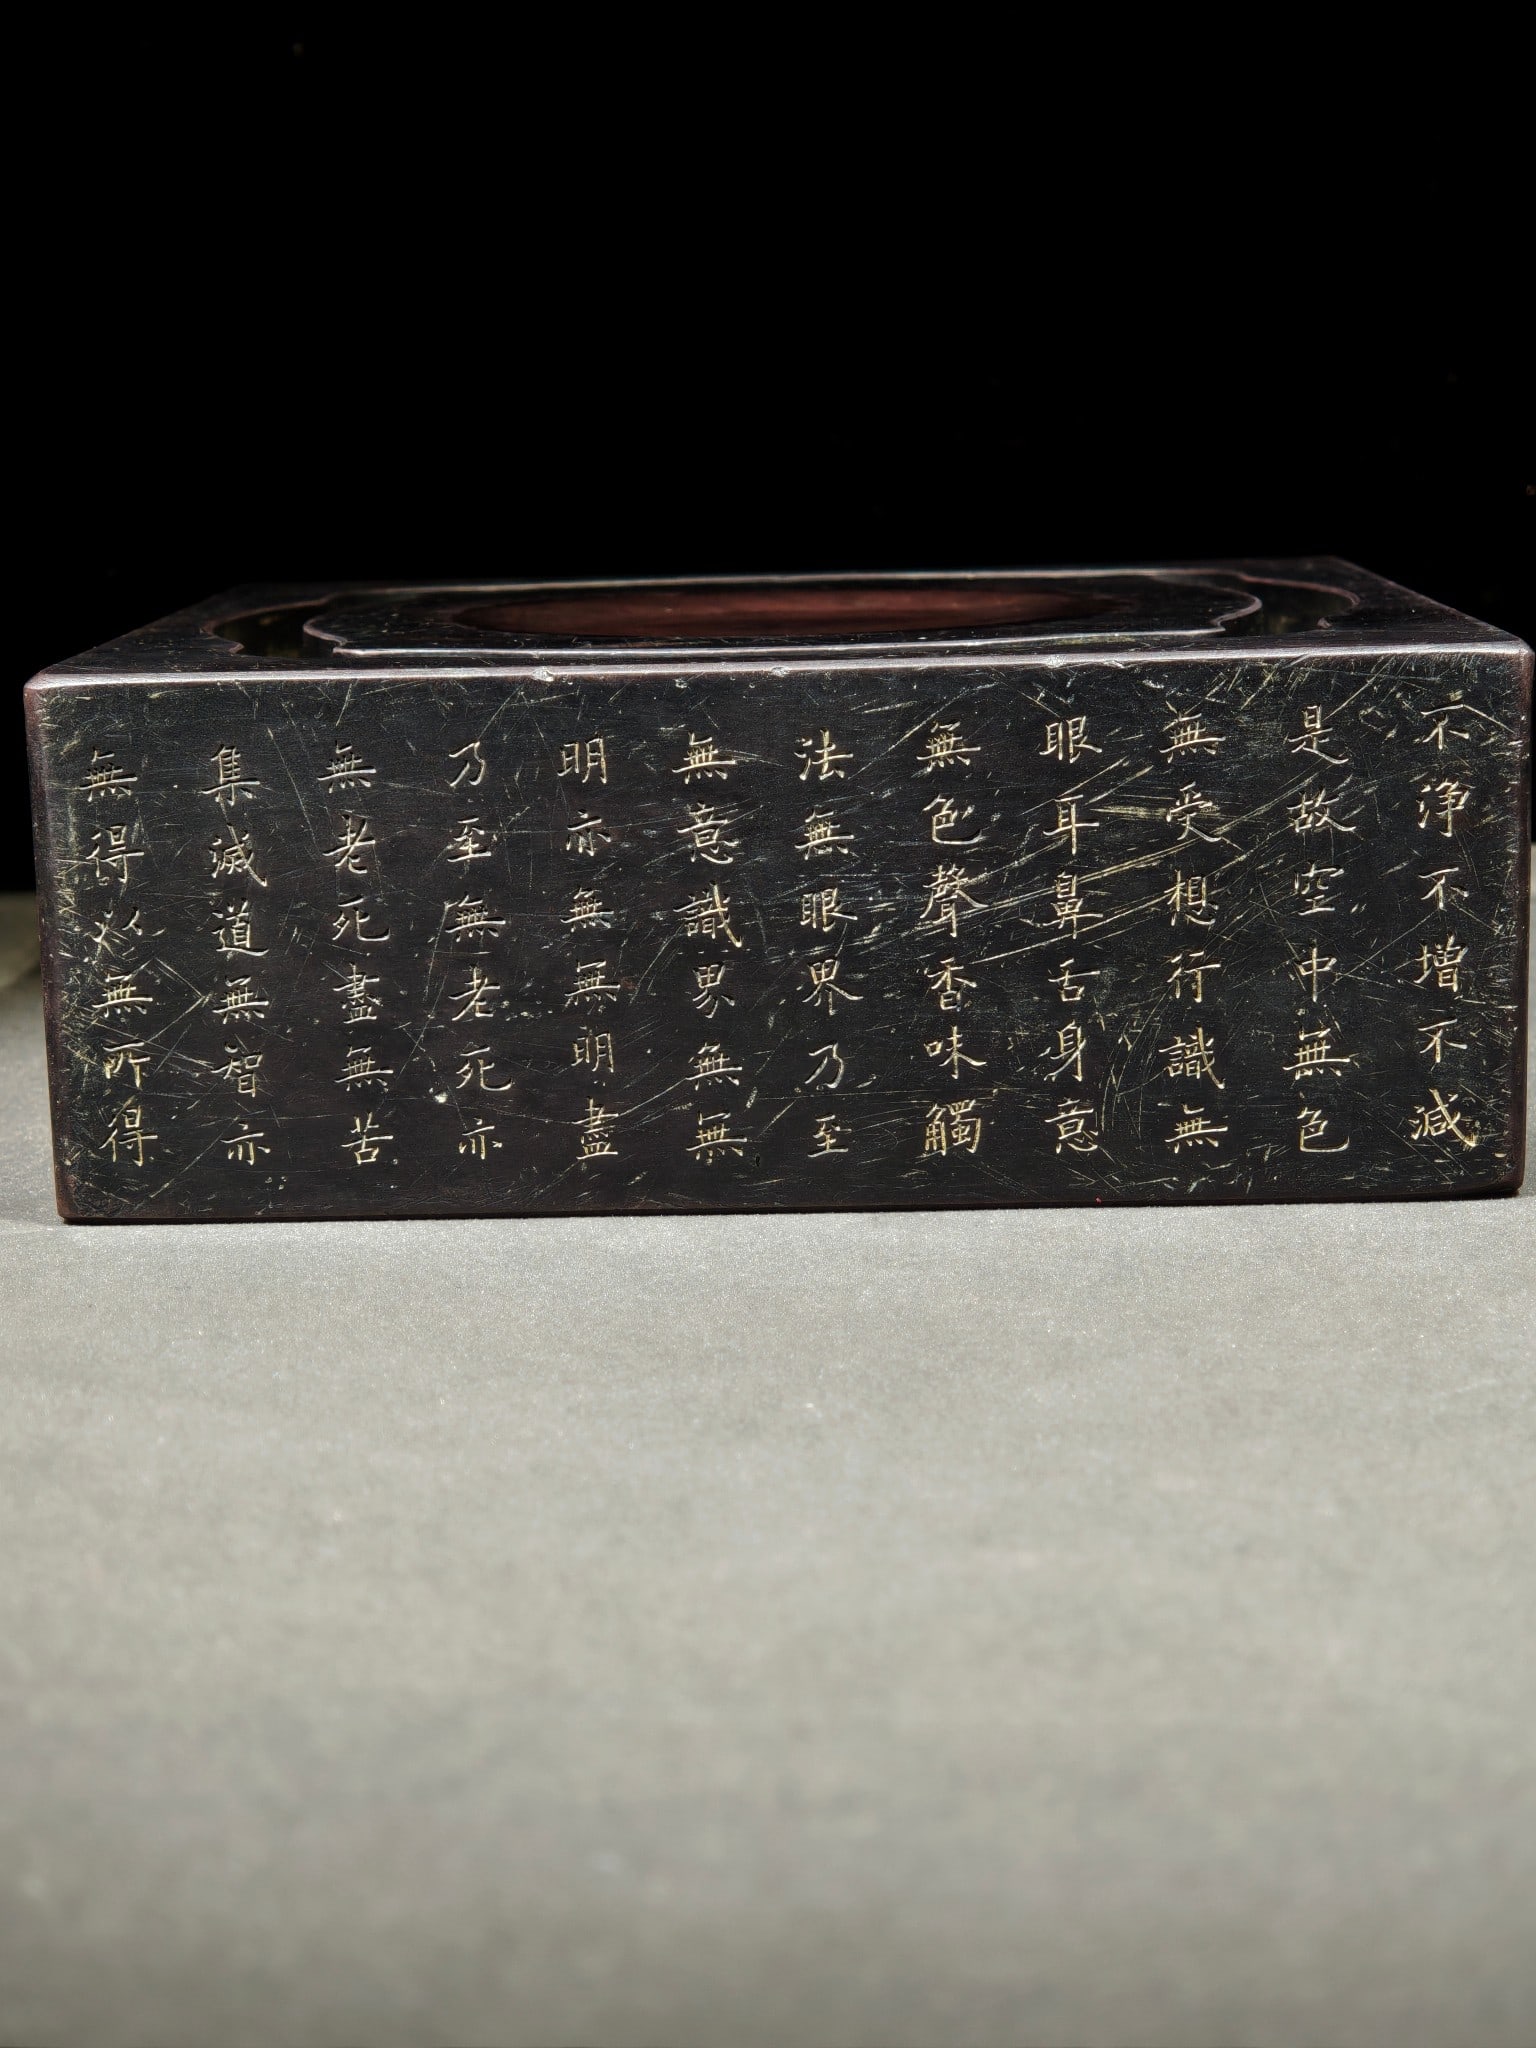 不淨不增不減
是故空中無色
無受想行識無
眼耳鼻舌身意
無色聲香味觸
法無眼界乃至
無意識界無無
明亦無無明盡
乃至無老死亦
無老死盡無苦
集滅道無智亦
無得以無所得